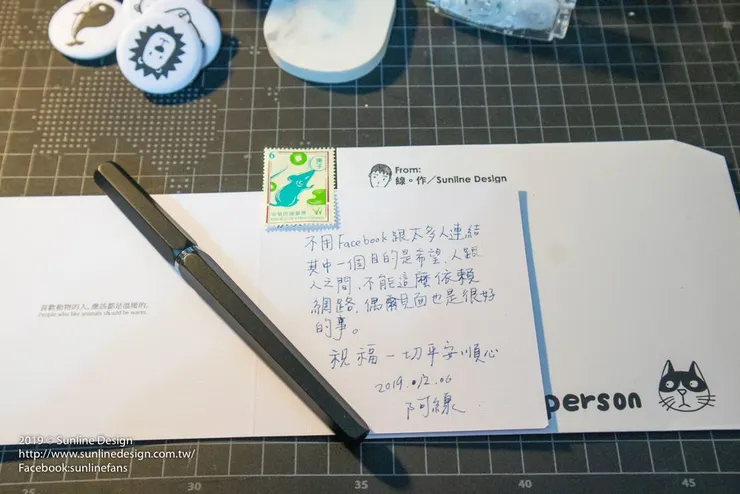 From:
線。作/Sunline Design
不用Facebook跟太多人連結
其中一個目的是希望,人跟
人之間,不能這麼依賴
網路,偶爾見面也是很好
的事。
祝福一切平安順心
2019.12.06
阿線
喜歡動物的人,應該都是溫暖的。
People who like animals should be warm.
person
2019 © Sunline Design
http://www.sunlinedesign.com.tw/
Facebook:sunlinefans
25
30
35
40
45